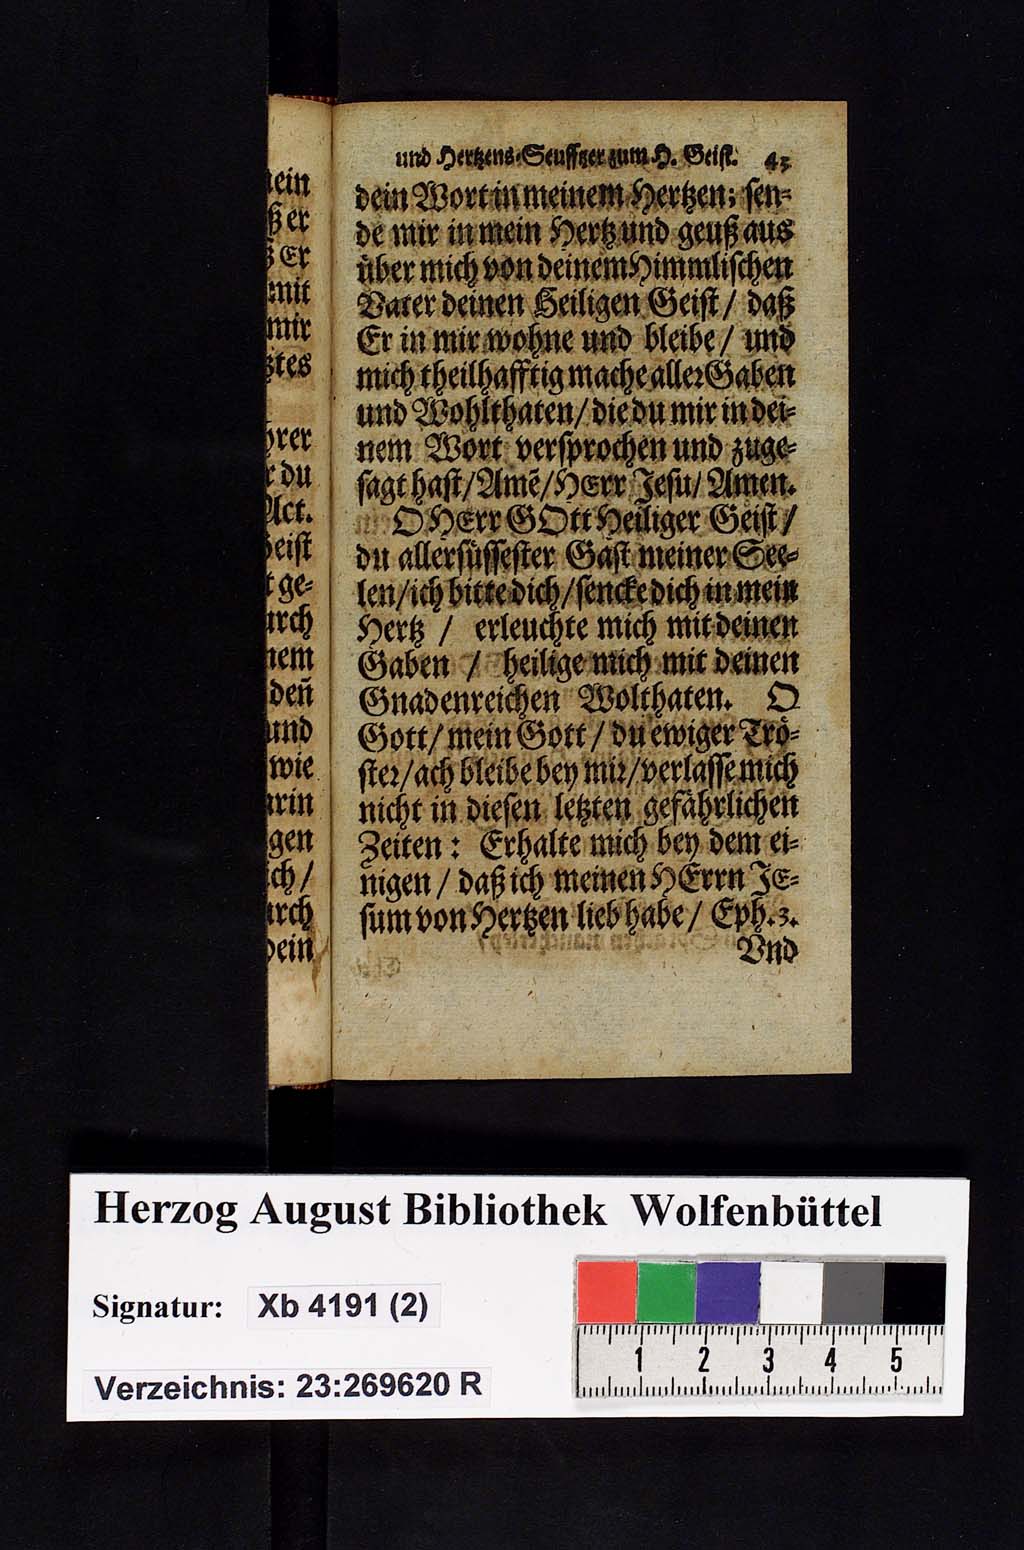 und Hertzens-Seufftzer zum H. Geist. 43
dein Wort in meinem Hertzen; sen-
de mir in mein Hertz und geuß aus
über mich von deinem Himmlischen
Vater deinen Heiligen Geist / daß
Er in mir wohne und bleibe / und
mich theilhafftig mache aller Gaben
und Wohlthaten / die du mir in dei-
nem Wort versprochen und zuge-
sagt hast / Amẽ / HErr Jesu / Amen.
O HErr GOtt Heiliger Geist /
du allersüssester Gast meiner See-
len / ich bitte dich / sencke dich in mein
Hertz / erleuchte mich mit deinen
Gaben / heilige mich mit deinen
Gnadenreichen Wolthaten. O
Gott / mein Gott / du ewiger Trö-
ster / ach bleibe bey mir / verlasse mich
nicht in diesen letzten gefährlichen
Zeiten: Erhalte mich bey dem ei-
nigen / daß ich meinen HErrn JE-
sum von Hertzen lieb habe / Eph. 3.
Vnd
ein
ß er
Er
mit
mir
tztes
hrer
r du
Act.
Geist
t ge-
urch
nem
deñ
und
wie
arin
gen
ich /
urch
dein
Herzog August Bibliothek Wolfenbüttel
Signatur: Xb 4191 (2)
Verzeichnis: 23:269620 R
1 2 3 4 5